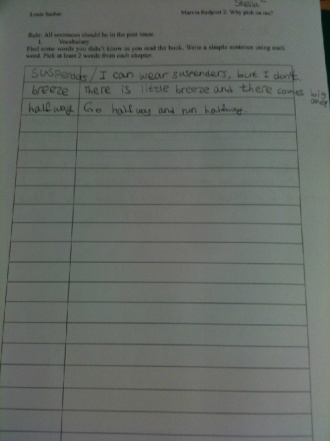 Sheila
Louis Sachar Marvin Redpost 2: Why pick on me?
Rule: All sentences should be in the past tense.
1. Vocabulary
Find some words you didn't know as you read the book. Write a simple sentence using each
word. Pick at least 2 words from each chapter.
suspender / I can wear suspenders, but I don't
breeze there is little breeze and there comes big
ones
halfway Go halfway and run halfway.